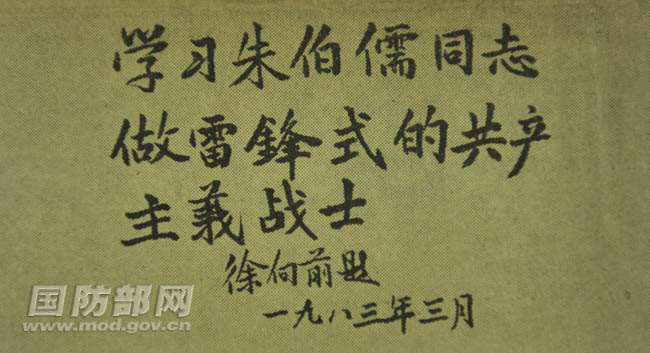 学习朱伯儒同志
做雷鋒式的共产
主義战士
徐向前题
一九八三年三月
国防部网
www.mod.gov.cn